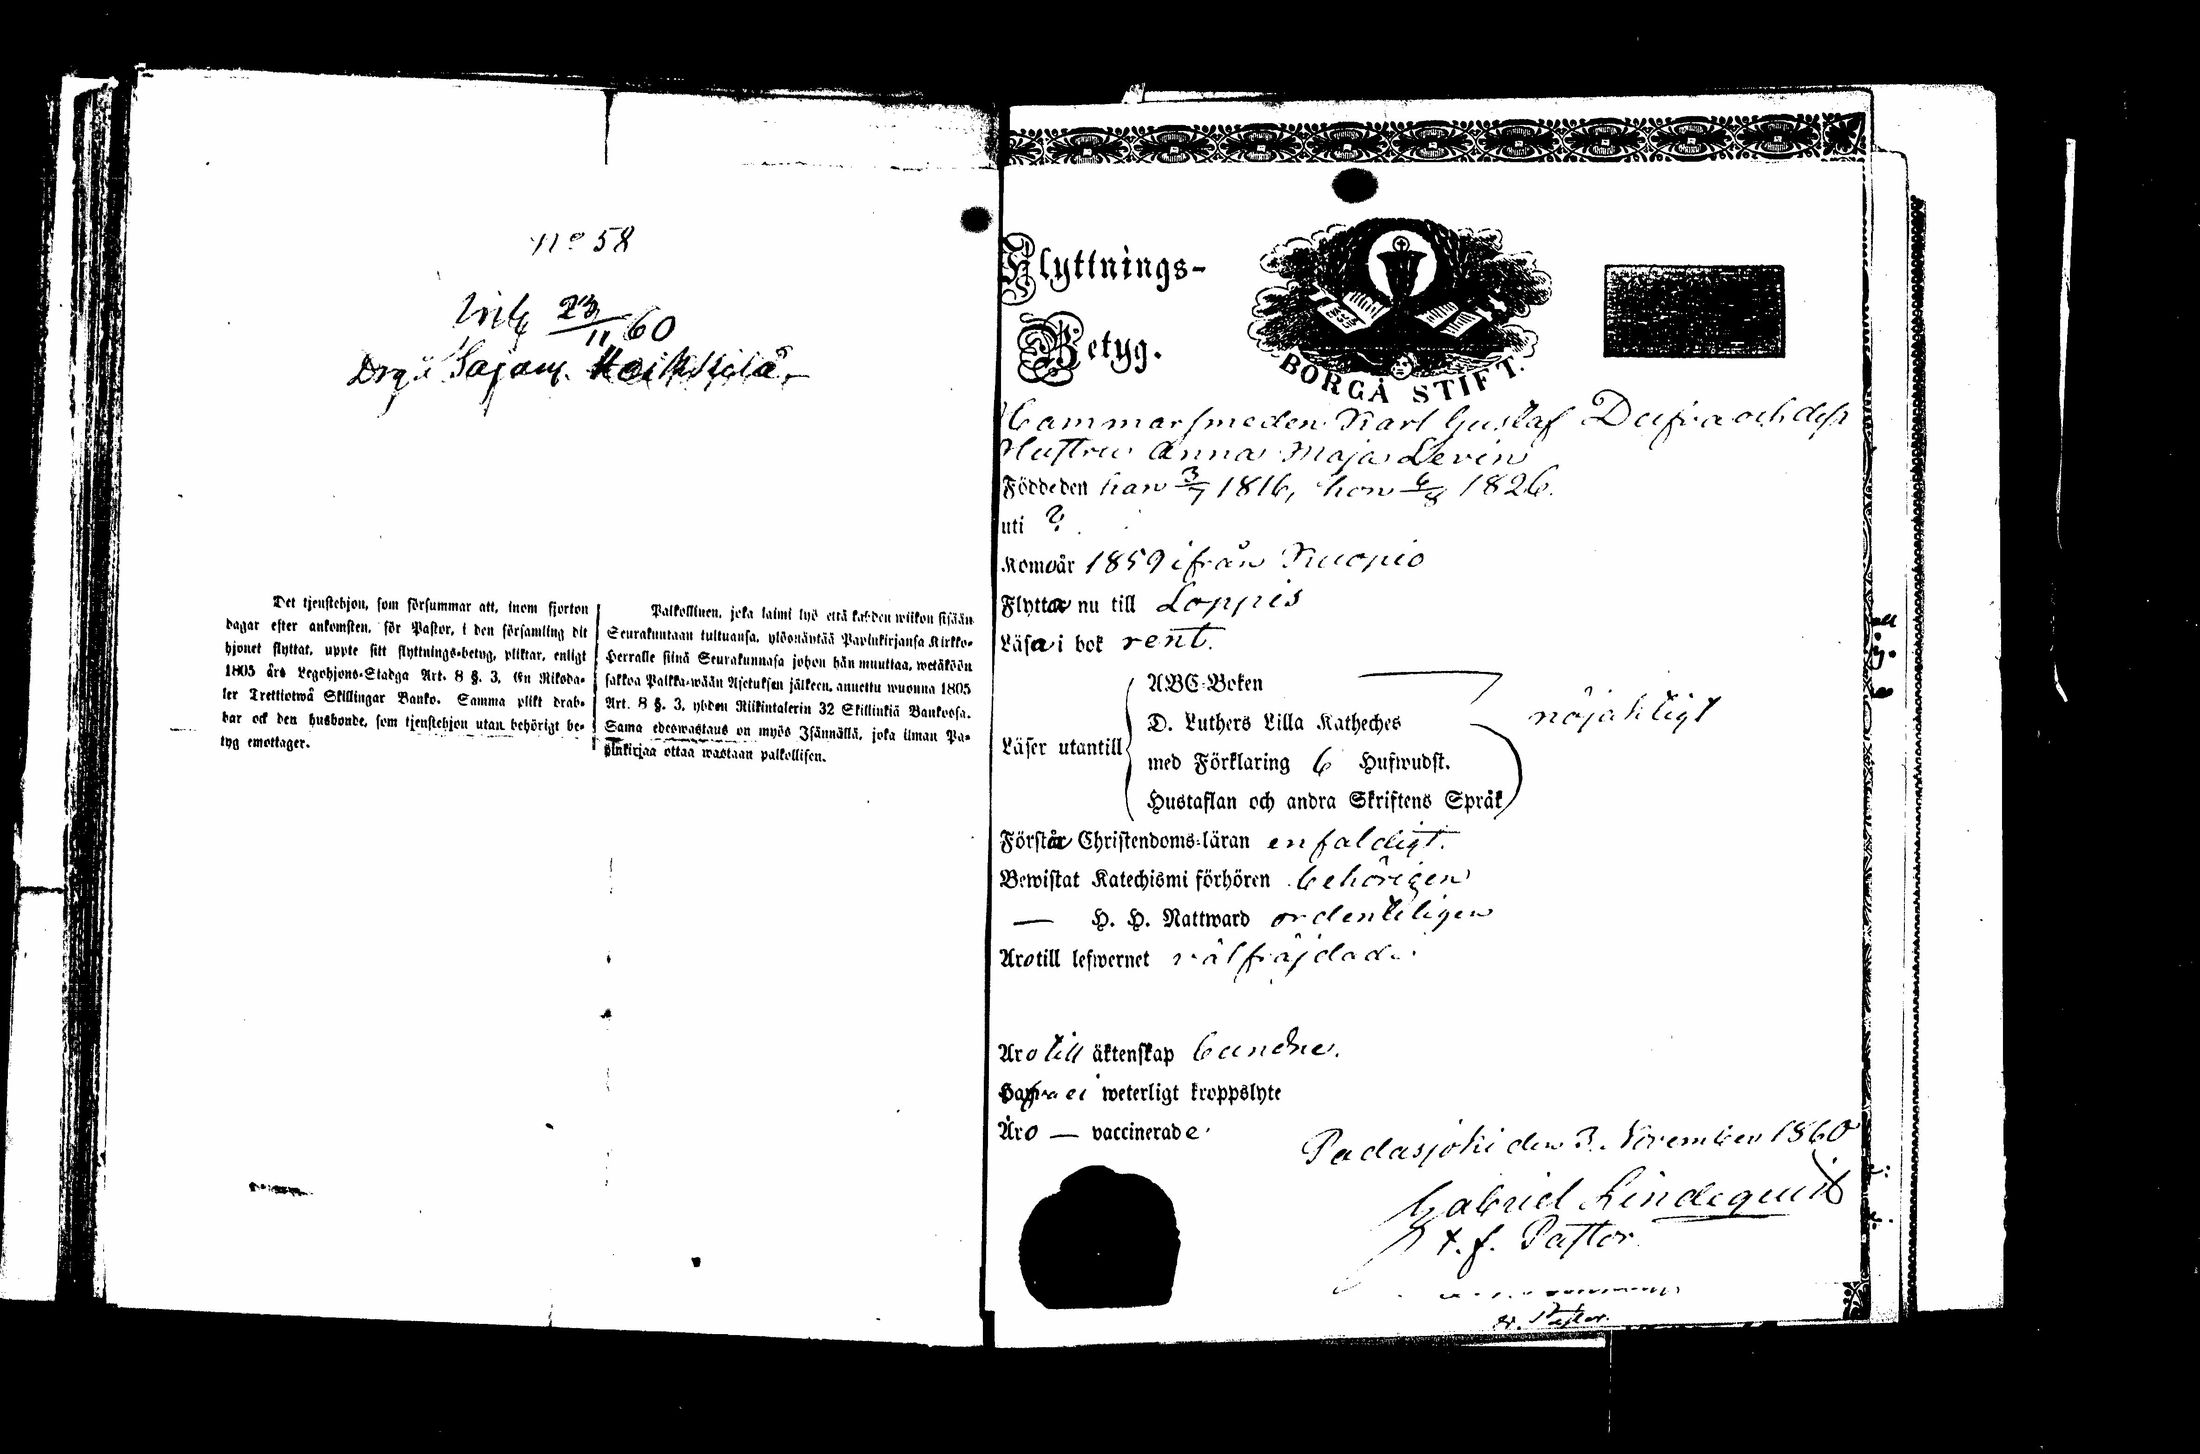 nᵒ 58
23/11 60
Det tjenstehjon, som försummar att, inom fjorton
dagar efter ankomsten, för Pastor, i den församling dit
hjonet flyttat, uppte sitt flyttnings-betyg, pliktar, enligt
1805 års Legohjons-Stadga Art. 8 §. 3, En Riksda-
ler Trettiotwå Skillingar Banko. Samma plikt drab-
bar ock den husbonde, som tjenstehjon utan behörigt be-
tyg emottager.
Palkollinen, joka laimi lyö että kahden wiikon sisään
Seurakuntaan tultuansa, ylösnäytää Papinkirjansa Kirkko-
Herralle siinä Seurakunnasa johon hän muuttaa, wetäköön
sakkoa Palkka-wään Asetuksen jälkeen, annettu wuonna 1805
Art. 8 §. 3, yhden Riikintalerin 32 Skillinkiä Bankossa.
Sama edeswastaus on myös Isännällä, joka ilman Pa-
pinkirjaa ottaa wastaan palkollisen.
Flyttnings-
Betyg.
BORGÅ STIFT.
Hammarsmeden Karl Gustaf Dufva och dess
Hustru Anna Maja Levin
Födde den han 3/7 1816, hon 6/8 1826.
uti ?
Komo år 1859 ifrån Kuopio
Flytta nu till Loppis
Läsa i bok rent.
Läser utantill
ABC-Boken
D. Luthers Lilla Katheches
med Förklaring 6 Hufwudst.
Hustaflan och andra Skriftens Språk
nöjaktligt
Förstå Christendoms-läran enfaldigt.
Bewistat Katechismi förhören behörigen
— H. H. Nattward ordentligen
Äro till lefwernet välfräjdade
Äro till äktenskap bundne.
Hafva ei weterligt kroppslyte
Äro — vaccinerade
Padasjoki den 3 November 1860
Gabriel Lindequist
t. f. Pastor
v. Pastor.